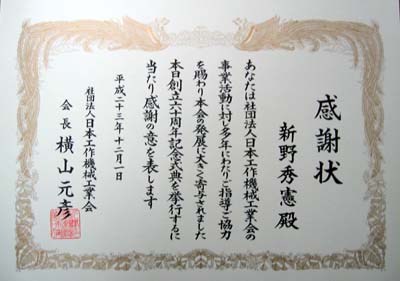 感謝状
新野秀憲殿
あなたは社団法人日本工作機械工業会の
事業活動に対し多年にわたりご指導ご協力
を賜わり本会の発展に大きく寄与されました
本日創立六十周年記念式典を挙行するに
当たり感謝の意を表します
平成二十三年十二月一日
社団法人日本工作機械工業会
会長 横山元彦